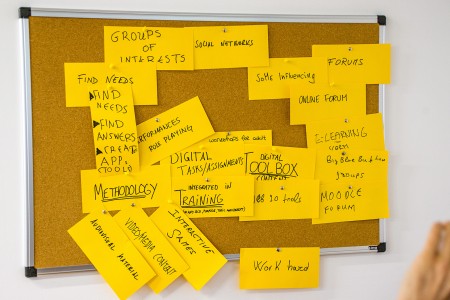 GROUPS
OF
INTERESTS
SOCIAL NETWORKS
FIND NEEDS
SoMe Influencing
FORUMS
FIND
NEEDS
FIND
ANSWERS
CREATE
APP.
TOOLS
ONLINE FORUM
PERFORMANCES
ROLE PLAYING
WORKSHOPS for adult
E-LEARNING
Big Blue Button
GROUPS
DIGITAL
TASKS/ASSIGNMENTS
DIGITAL
TOOLBOX
CONTENT
METHODOLOGY
INTEGRATED IN
TRAINING
WEB 2.0 tools
MOODLE
FORUM
AUDIOVISUAL MATERIAL
VIDEO/MEDIA CONTENT
INTERACTIVE
GAMES
Work based